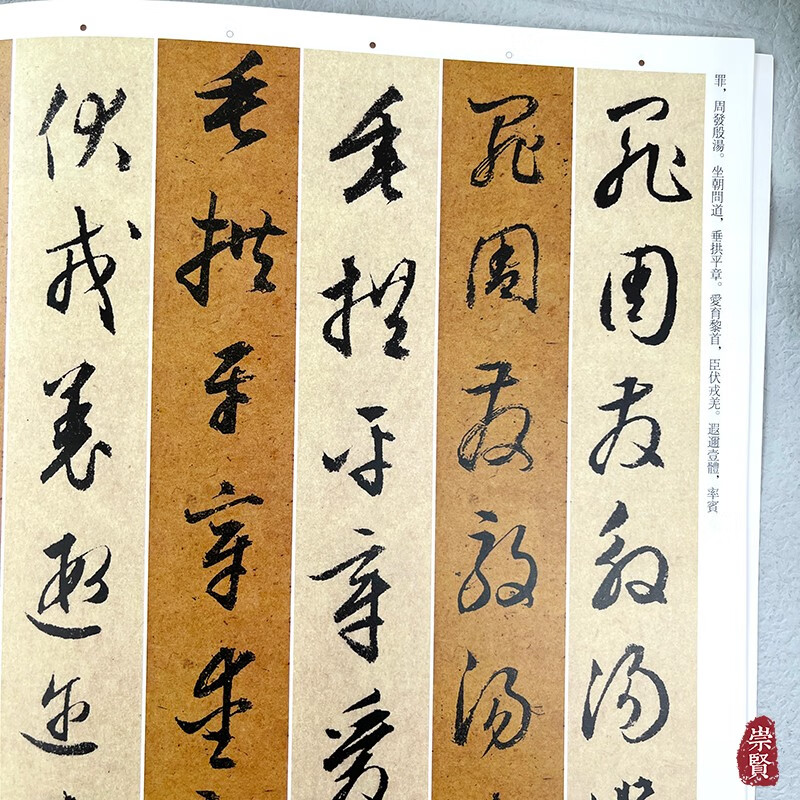 罪，周發殷湯。坐朝問道，垂拱平章。愛育黎首，臣伏戎羌。遐邇壹體，率賓
罪周發殷湯
罪周發殷湯
垂拱平章愛
垂拱平章愛
伏戎羌遐邇
崇賢